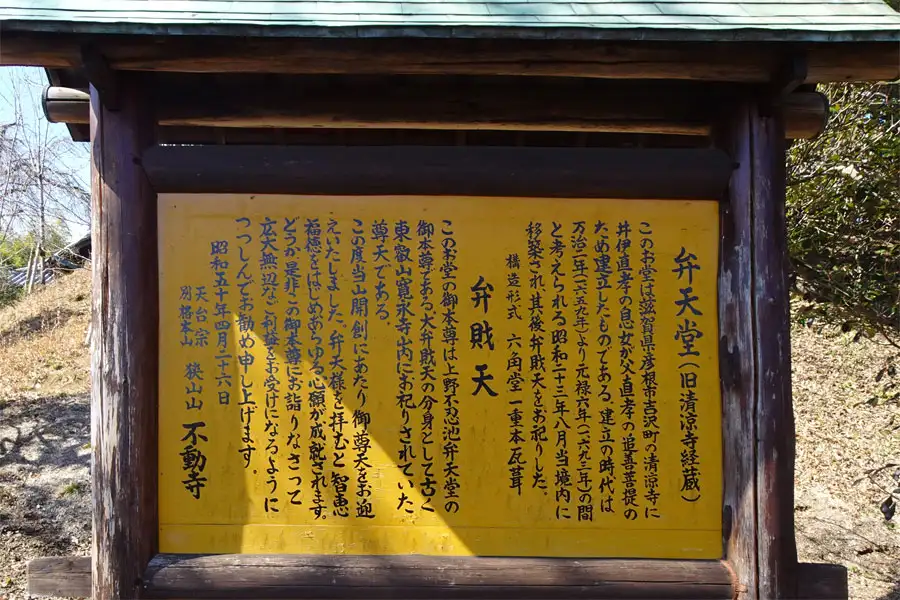 弁天堂(旧清涼寺経蔵)
このお堂は滋賀県彦根市古沢町の清涼寺に
井伊直孝の息女が父直孝の追善菩提の
ため建立したものである。建立の時代は
万治二年(一六五九年)より元禄六年(一六九三年)の間
と考えられる昭和二十三年八月当境内に
移築され、其後弁財天をお祀りした。
構造形式 六角堂一重本瓦葺
弁財天
このお堂の御本尊は上野不忍池弁天堂の
御本尊である大弁財天の分身として古く
東叡山寛永寺山内にお祀りされていた
尊天である。
この度当山開創にあたり御尊天をお迎
えいたしました。弁天様を拝むと智恵
福徳をはじめあらゆる心願が成就されます。
どうか是非この御本尊にお詣りなさって
広大無辺なご利益をお受けになるように
つつしんでお勧め申し上げます。
昭和五十年四月二十六日
天台宗
別格本山 狭山山 不動寺